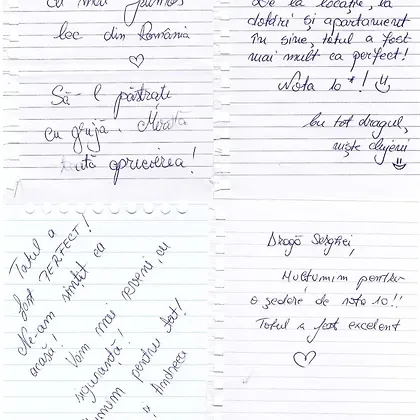 loc din România
♡
Să-l păstrați
cu grijă. Merită
toată aprecierea!
De la locație, la
dotări și apartament
în sine, totul a fost
mai mult ca perfect!
Nota 10*! 
Cu tot dragul,
niște clujeni
Totul a
fost PERFECT!
Ne-am simțit ca
acasă!
Vom mai reveni, cu
siguranță!
pentru tot!
Dragă Serghei,
Mulțumim pentru
o ședere de nota 10!!
Totul a fost excelent
♡